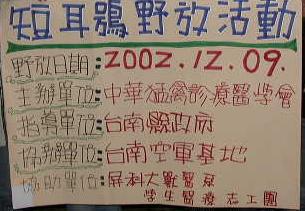 短耳鴞野放活動
野放日期:2002.12.09.
主辦單位:中華猛禽診療醫學會
指導單位:台南縣政府
協辦單位:台南空軍基地
協助單位:屏科大獸醫系
學生醫療志工團